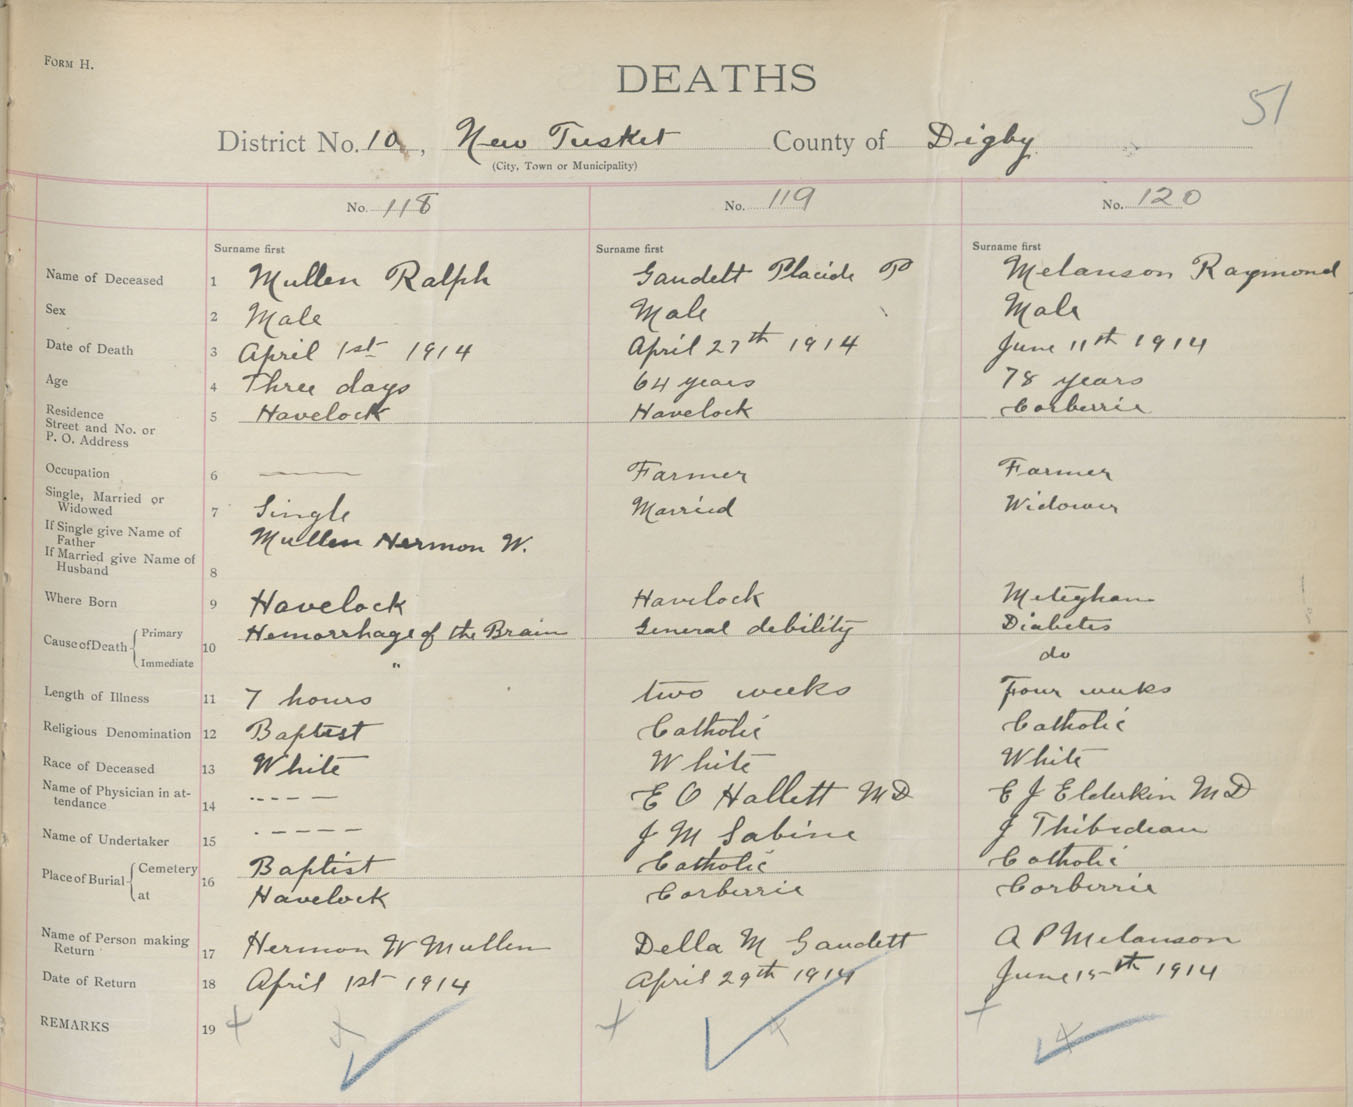 FORM H.
DEATHS
51
District No. 10, New Tusket County of Digby
(City, Town or Municipality)
No. 118 No. 119 No. 120
Surname first Surname first Surname first
Name of Deceased 1 Mullen Ralph Gaudett Placide P Melanson Raymond
Sex 2 Male Male Male
Date of Death 3 April 1st 1914 April 27th 1914 June 11th 1914
Age 4 Three days 64 years 78 years
Residence Street and No. or P. O. Address 5 Havelock Havelock Corberrie
Occupation 6 — Farmer Farmer
Single, Married or Widowed 7 Single Married Widower
If Single give Name of Father Mullen Hermon W.
If Married give Name of Husband 8
Where Born 9 Havelock Havelock Meteghan
Cause of Death 10 Primary Hemorrhage of the Brain General debility Diabetes
Immediate " do
Length of Illness 11 7 hours two weeks Four weeks
Religious Denomination 12 Baptist Catholic Catholic
Race of Deceased 13 White White White
Name of Physician in attendance 14 ---- E O Hallett MD E J Elderkin MD
Name of Undertaker 15 ----- J M Sabine J Thibedeau
Place of Burial 16 Cemetery Baptist Catholic Catholic
at Havelock Corberrie Corberrie
Name of Person making Return 17 Hermon W Mullen Della M Gaudett A P Melanson
Date of Return 18 April 1st 1914 April 29th 1914 June 15th 1914
REMARKS 19